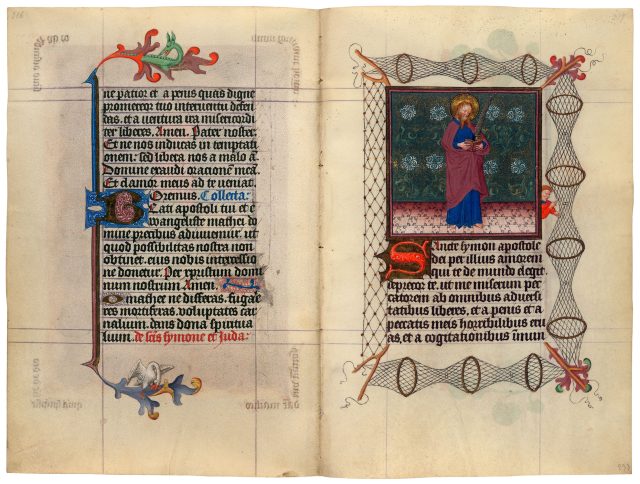 ne patior et a penis quas digne
promereor tuo interventu defen
das, et a ventura ira misericordi
ter liberes. Amen. Pater noster.
Et ne nos inducas in temptati
onem: sed libera nos a malo A.
Domine exaudi oracionem meā.
Et clamor meus ad te veniat.
Oremus. Collecta:
Beati apostoli tui et e
vangeliste mathei do
mine precibus adiuvemur, ut
quod possibilitas nostra non
obtinet, eius nobis intercessio
ne donetur. Per cristum domi
num nostrum Amen.
O mathee ne differas, fugāe
res mortiferas, voluptates car
nalium, dans dona spiritua
lium. de scīs symone et Juda:
Sancte symon apostole
dei per illius amorem
qui te de mundo elegit.
deprecor te, ut me miserum pec
catorem ab omnibus adversi
tatibus liberes, et a penis et a
peccatis meis horribilibus eru
as, et a cogitationibus inmun